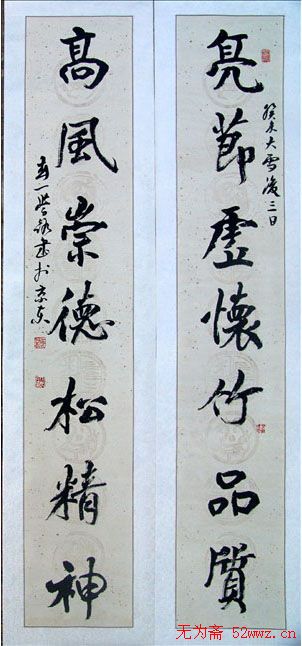 亮節虛懷竹品質
癸未大雪後三日
高風崇德松精神
書於京東
无为斋 52wwz.cn